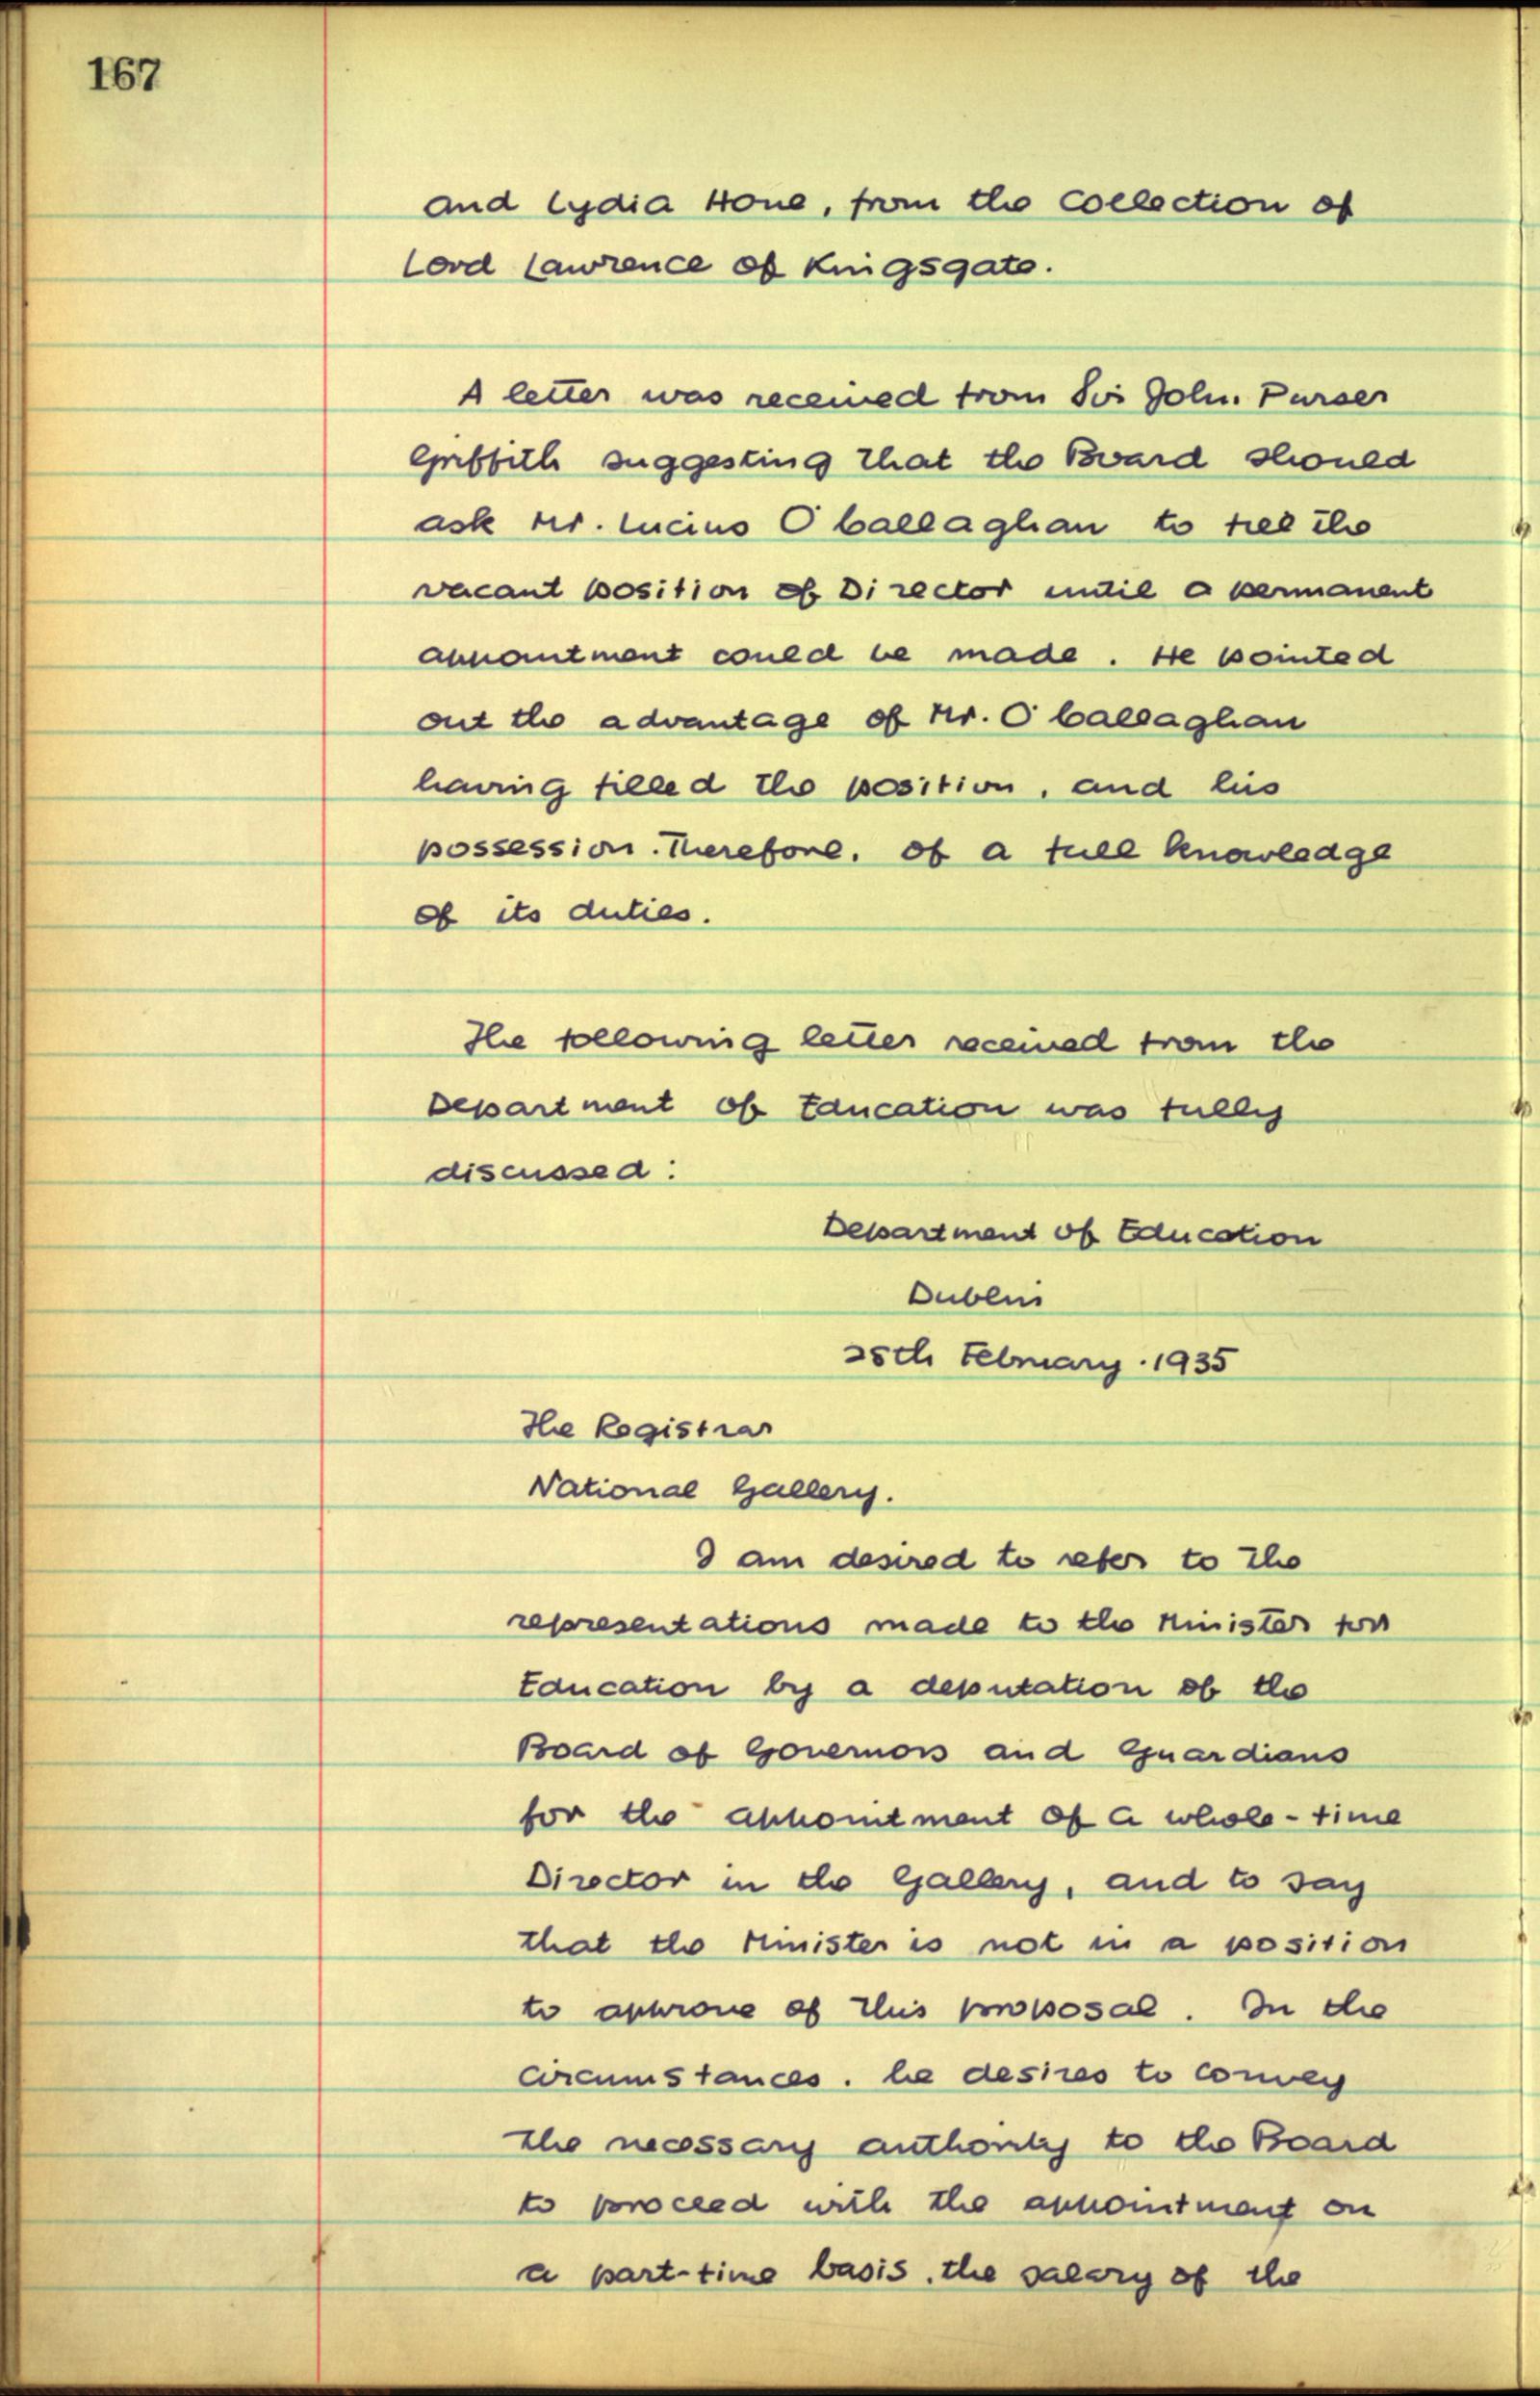 167
and Lydia Hone, from the Collection of
Lord Lawrence of Kingsgate.
A letter was received from Sir John Purser
Griffith suggesting that the Board should
ask Mr. Lucius O'Callaghan to fill the
vacant position of Director until a permanent
appointment could be made. He pointed
out the advantage of Mr. O'Callaghan
having filled the position, and his
possession. Therefore, of a full knowledge
of its duties.
The following letter received from the
Department of Education was fully
discussed:
Department of Education
Dublin
25th February. 1935
The Registrar
National Gallery.
I am desired to refer to the
representations made to the Minister for
Education by a deputation of the
Board of Governors and Guardians
for the appointment of a whole-time
Director in the Gallery, and to say
that the Minister is not in a position
to approve of this proposal. In the
circumstances, he desires to convey
the necessary authority to the Board
to proceed with the appointment on
a part-time basis, the salary of the